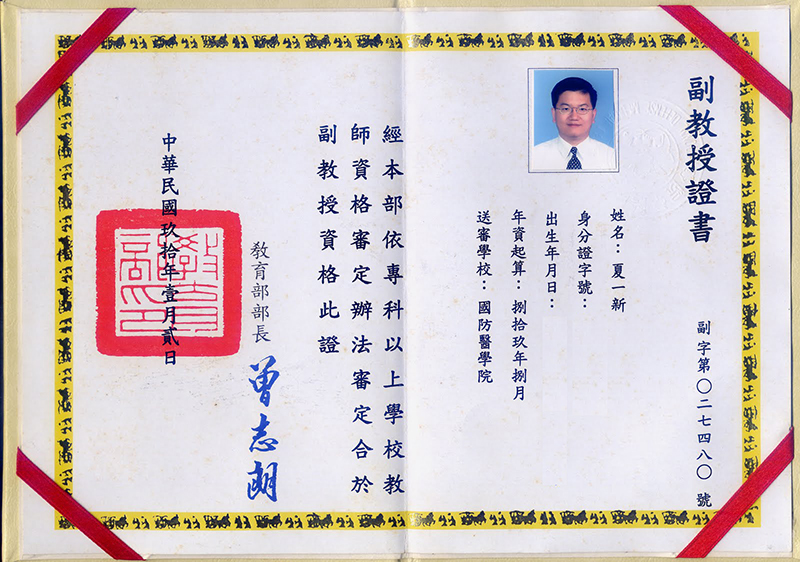 副教授證書
副字第〇二七四八〇號
姓名：夏一新
身分證字號：
出生年月日：
年資起算：捌拾玖年捌月
送審學校：國防醫學院
經本部依專科以上學校教
師資格審定辦法審定合於
副教授資格此證
教育部部長
曾志朗
中華民國玖拾年壹月貳日
教育部印